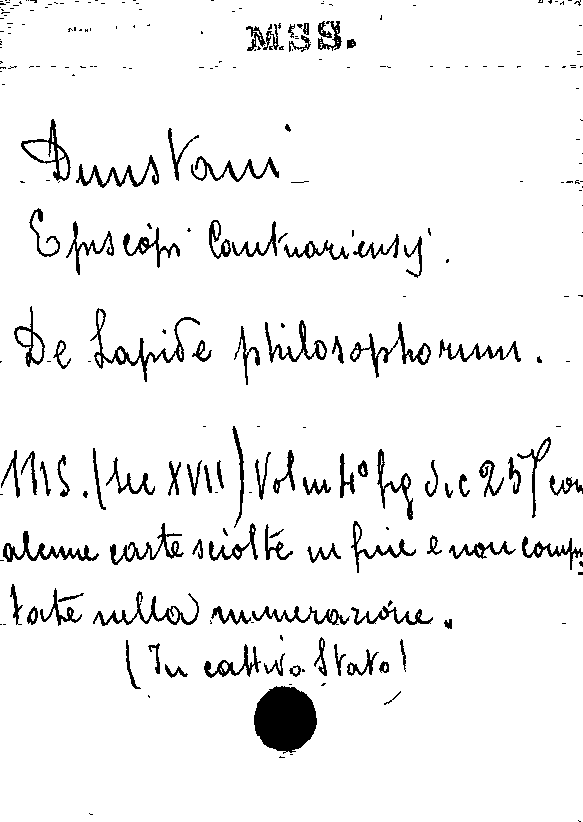 MSS.
Dunstani
Episcopi Cantuariensis.
De Lapide philosophorum.
MS. (sec XVII) Vol in 4° fig di c 257 con
alcune carte sciolte in fine e non compu-
tate nella numerazione.
(In cattivo Stato)